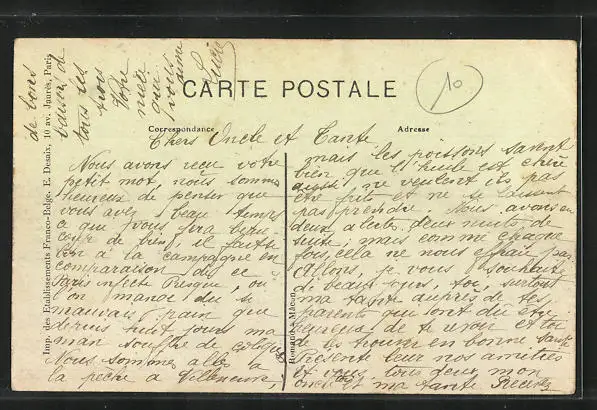 CARTE POSTALE
10
Correspondance
Adresse
Chers Oncle et Tante
Nous avons reçu votre
petit mot, nous somme
heureux de penser que
vous avez beau temps
ce que vous fera beau-
coup de bien, il fait si
bon à la campagne en
comparaison de ce
Paris infecte Presque, où
l'on mange du si
mauvais pain que
depuis huit jours ma
man souffre de coliques
Nous sommes allés à
la pêche à Villeneuve,
mais les poissons savent
bien que l'huile est chère
aussi ne veulent ils pas
être frits et ne se laissent
pas prendre. Nous avons eu
deux alertes deux nuits de
suite; mais comme chaque
fois, cela ne nous effraie pas.
Allons, je vous souhaite
de beaux jours, toi, surtout
ma tante auprès de tes
parents qui ont dû être
heureux de te revoir et toi
de les trouver en bonne santé
Présente leur nos amitiés
et vous tous deux, mon
oncle et ma tante Recevez
de bons
baisers de
tous les
trois
Votre
nièce
qui
vous
aime
Imp. des Etablissements Franco-Belge. E. Desaix, 10 av. Jaurès, Paris
Romand à Mâcon